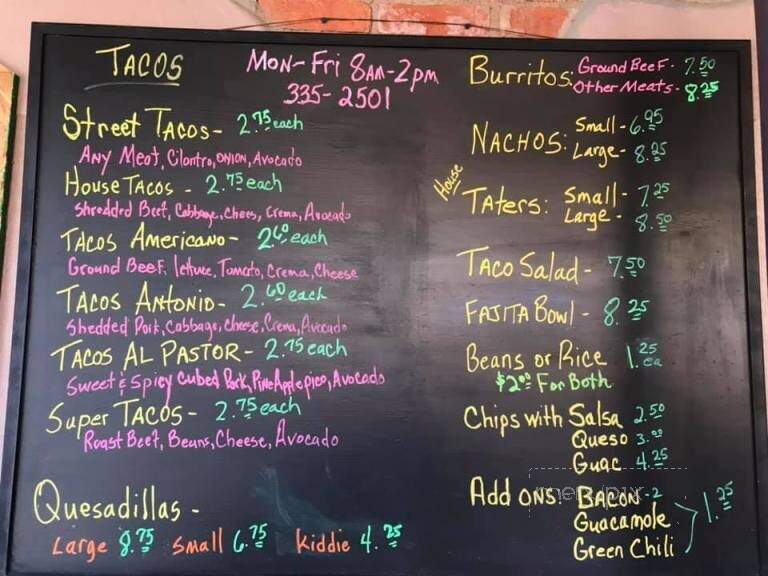 TACOS
Mon-Fri 8AM-2pm
335-2501
Street Tacos- 2.75 each
Any Meat, Cilantro, onion, Avocado
House Tacos - 2.75 each
Shredded Beef, Cabbage, Chees, Crema, Avocado
Tacos Americano- 2.60 each
Ground Beef, lettuce, Tomato, Crema, Cheese
Tacos Antonio- 2.60 each
Shedded Pork, Cabbage, Cheese, Crema, Avocado
Tacos Al Pastor- 2.75 each
Sweet & Spicy Cubed Pork, PineApple pico, Avocado
Super Tacos- 2.75 each
Roast Beef, Beans, Cheese, Avocado
Quesadillas -
Large 8.75 Small 6.75 Kiddie 4.25
Burritos: Ground Beef- 7.50
Other Meats- 8.25
Nachos: Small- 6.95
Large- 8.25
House
Taters: Small- 7.25
Large- 8.50
Taco Salad- 7.50
Fajita Bowl- 8.25
Beans or Rice 1.25 ea
$2.00 For Both
Chips with Salsa 2.50
Queso 3.00
Guac 4.25
Add ons: Bacon-2
Guacamole
Green Chili
1.25
menupix